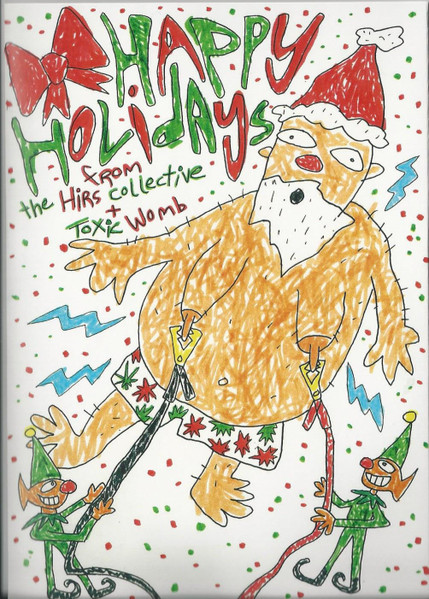 HAPPY
HOLidAys
fRom
the HiRs collective
+
Toxic Womb